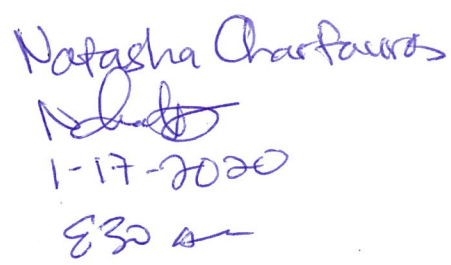 Natasha Charfauros
1-17-2020
830 am